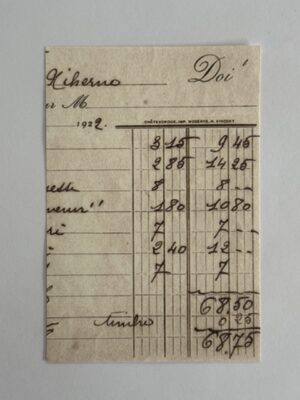 Doit
M
1922.
CHÂTEAUROUX, IMP. MODERNE, H. VINCENT
3 15 9 45
2 85 14 25
8 8 --
1 80 10 80
7 7 --
2 40 12 --
7 7
68.50
timbre 0 25
68.75